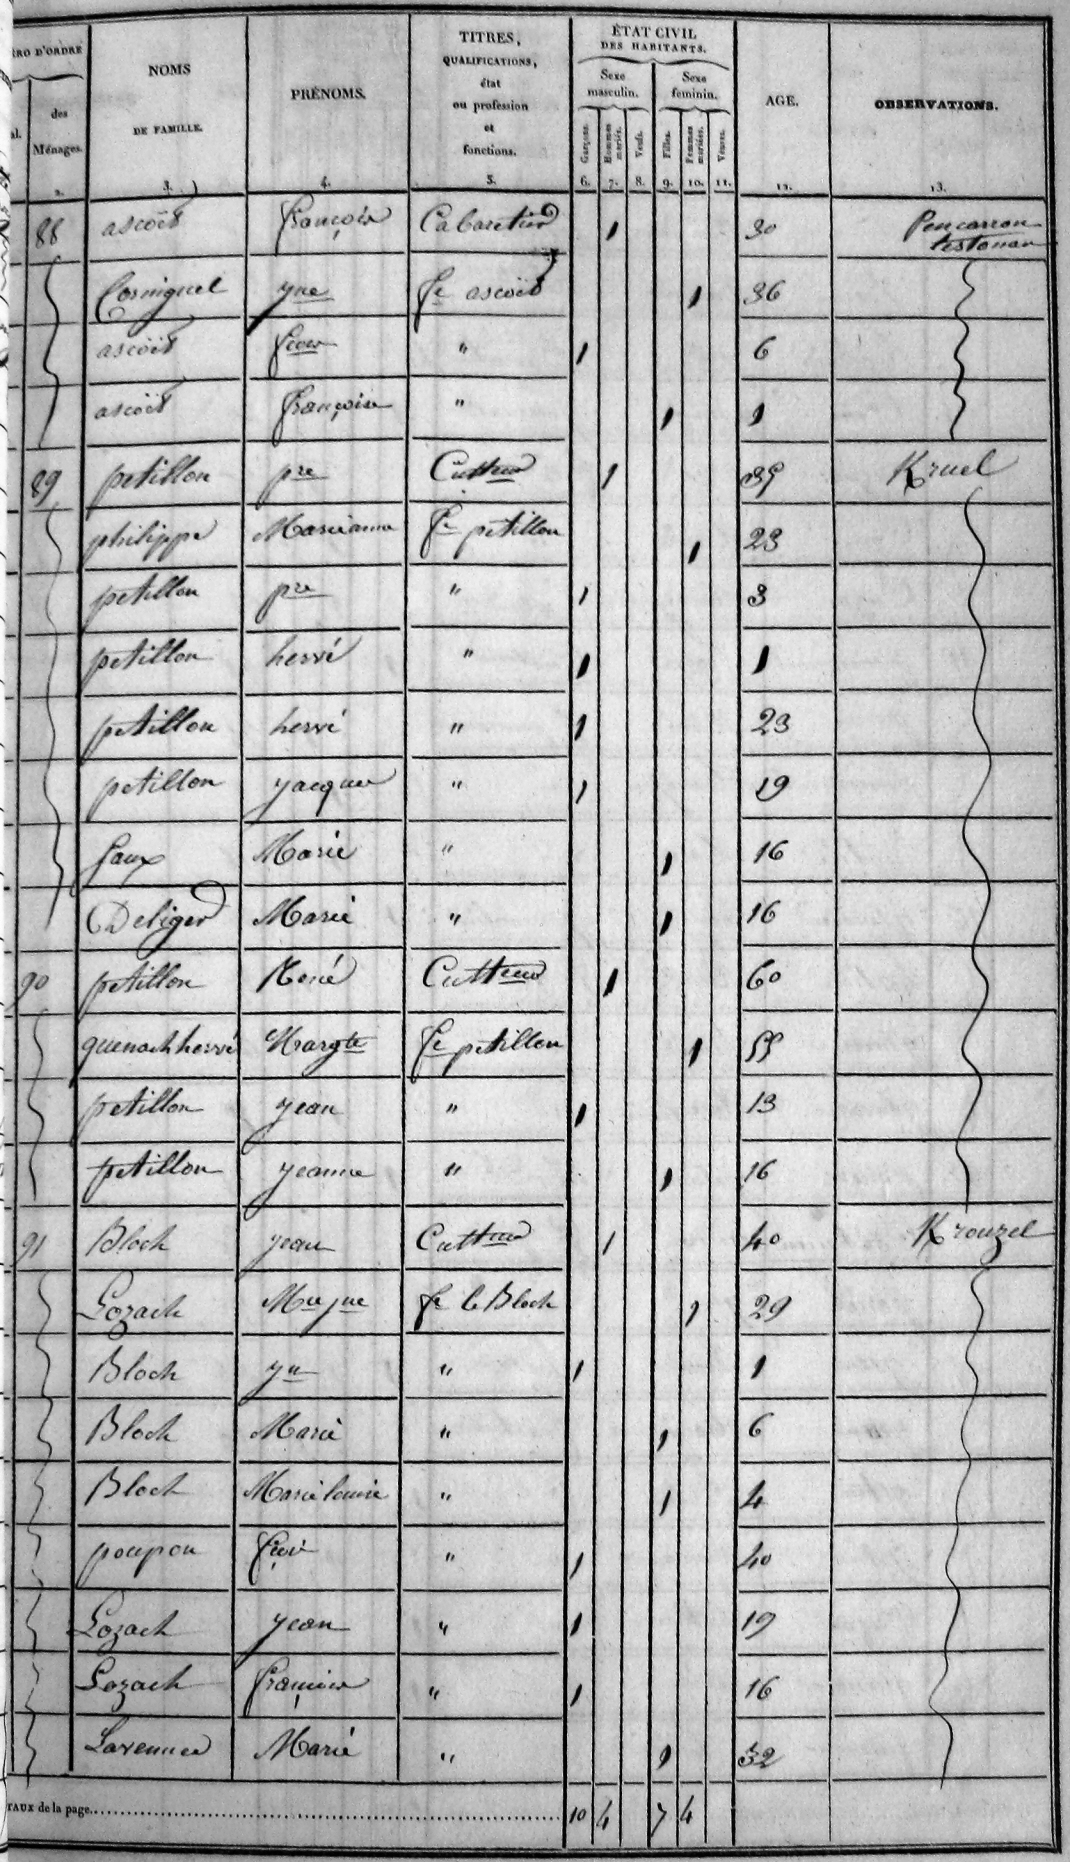 RO D'ORDRE
al.
des
Ménages.
2.
NOMS
DE FAMILLE.
3.
PRÉNOMS.
4.
TITRES,
QUALIFICATIONS,
état
ou profession
et
fonctions.
5.
ÉTAT CIVIL
DES HABITANTS.
Sexe
masculin.
Sexe
feminin.
Garçons.
Hommes mariés.
Veufs.
Filles.
Femmes mariées.
Veuves.
6. 7. 8. 9. 10. 11.
AGE.
12.
OBSERVATIONS.
13.
88 ascoët françois Cabaretier 1 30 Pencarron
testonan
Corniguel yne fe ascoët 1 36
ascoët fcois " 1 6
ascoët françoise " 1 1
89 petillon pre Cultteur 1 35 Kruel
philippe Marianne fe petillon 1 23
petillon pre " 1 3
petillon hervé " 1 1
petillon hervé " 1 23
petillon yacques " 1 19
faux Marie " 1 16
Deliger Marie " 1 16
90 petillon René Cultteur 1 60
quenach hervé Margte fe petillon 1 55
petillon yean " 1 13
petillon yeanne " 1 16
91 Bloch yean Cultteur 1 40 Krouzel
Lozach Mie jne fe le Bloch 1 29
Bloch yn " 1 1
Bloch Marie " 1 6
Bloch Marie louise " 1 4
poupon " 1 40
Lozach yean " 1 19
Lozach françois " 1 16
Marie " 1 32
TAUX de la page 10 4 7 4